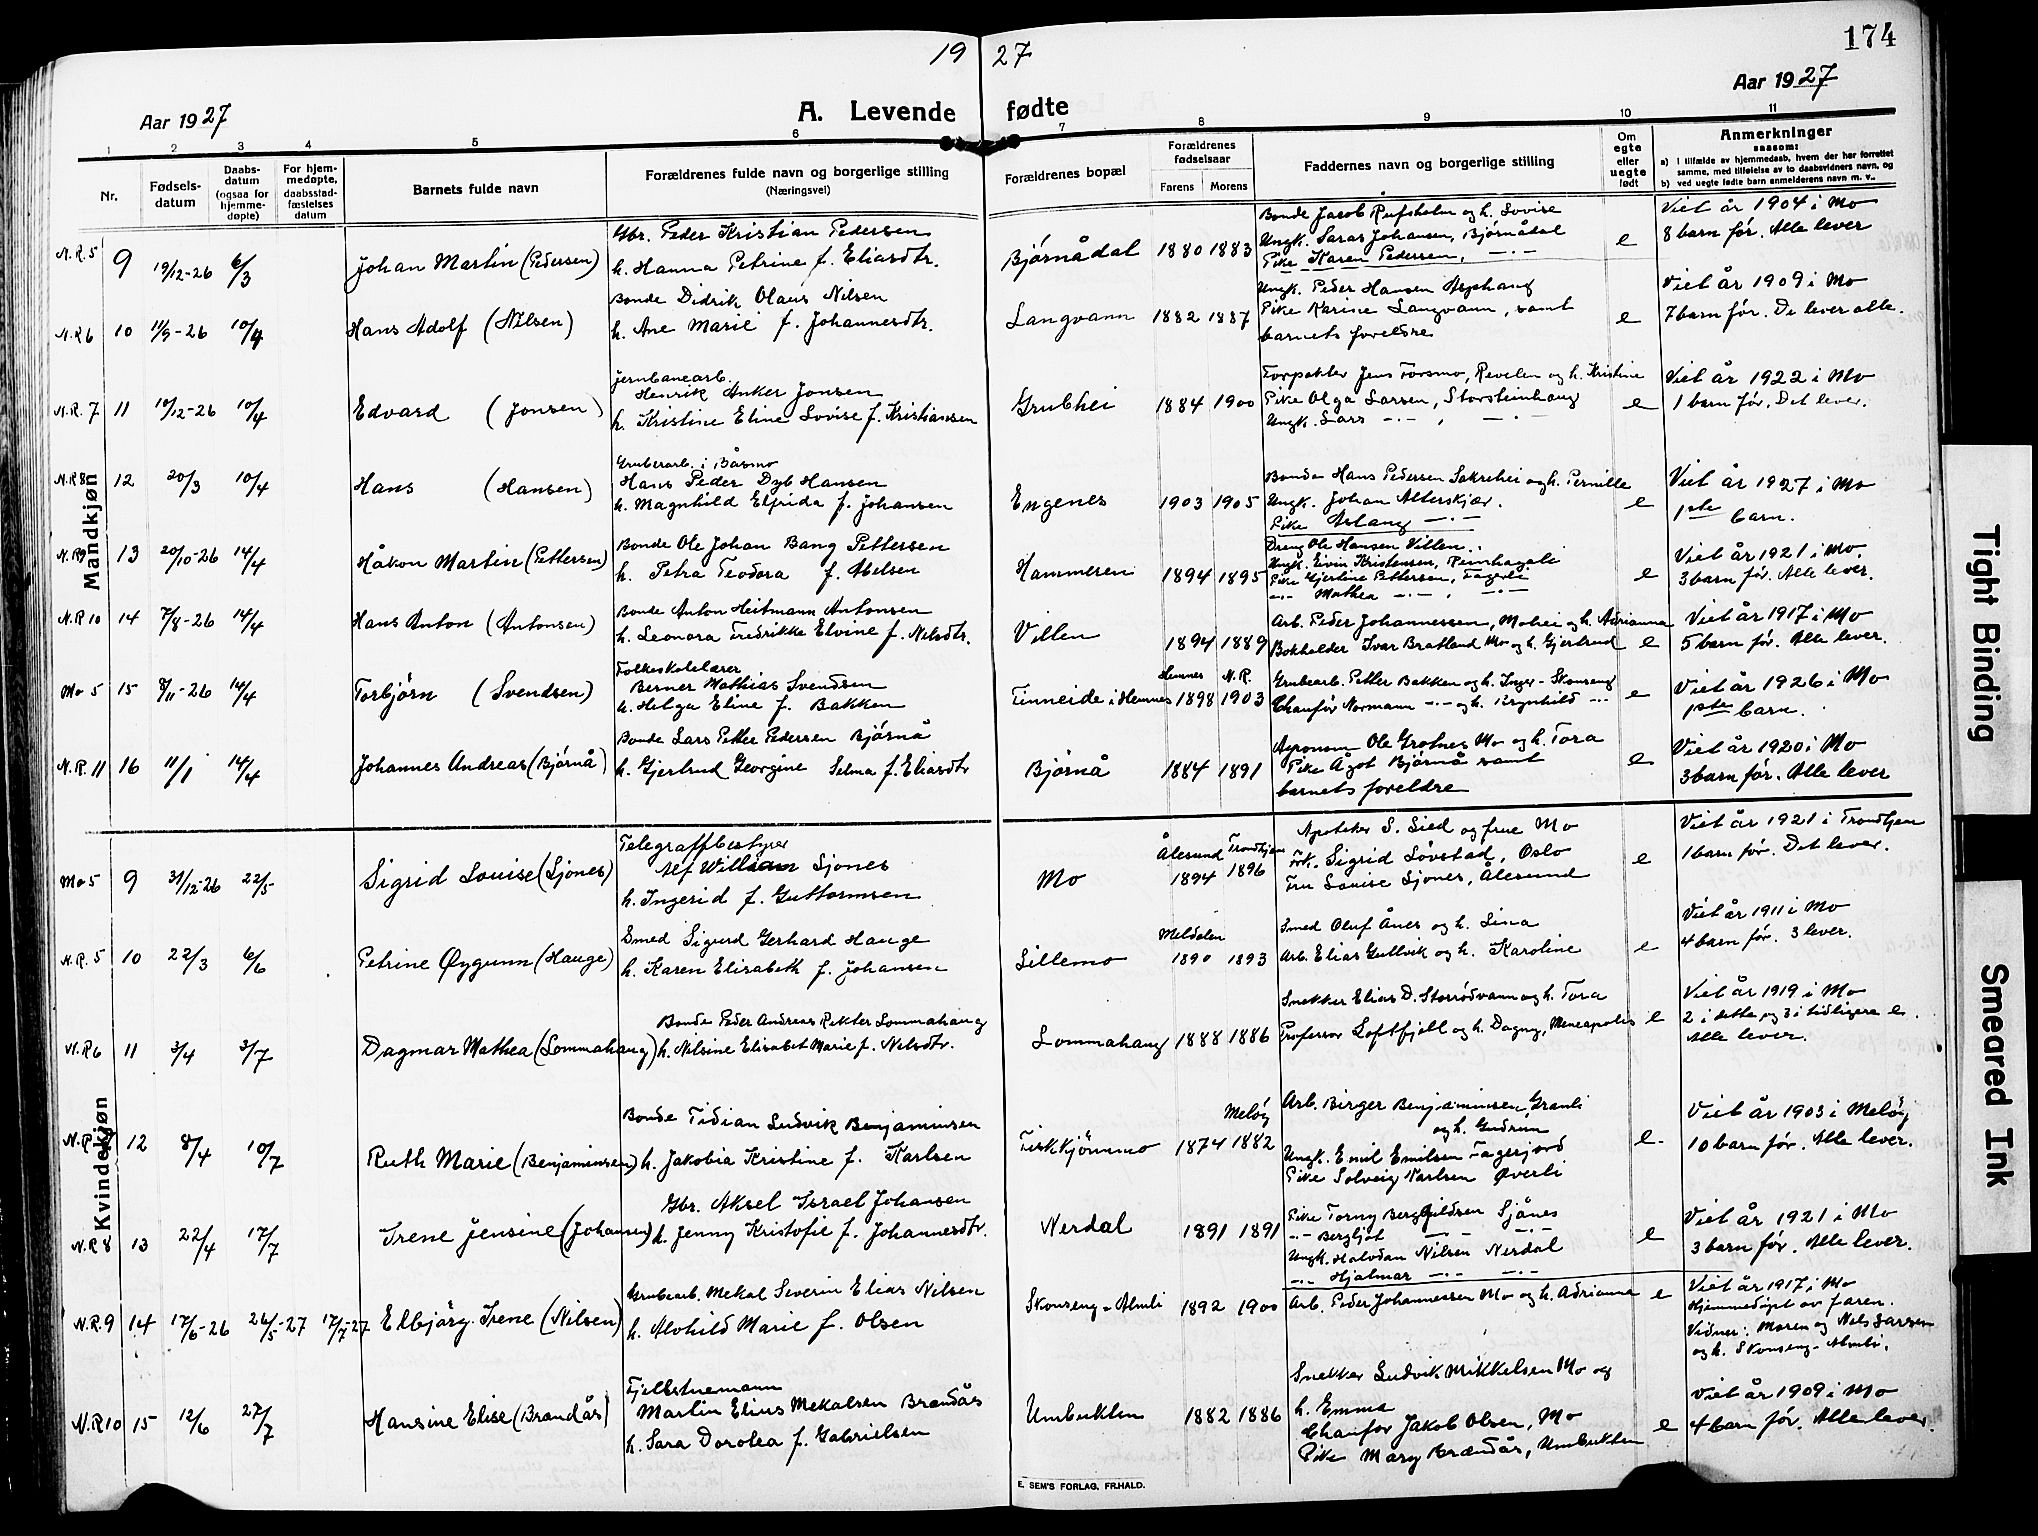 19 27
174
Aar 1927
A. Levende fødte
Aar 1927
1 2 3 4 5 6 7 8 9 10 11
Nr.
Fødsels-datum
Daabs-datum (ogsaa for hjemme-døpte)
For hjem-medøpte, daabsstad-fæstelses datum
Barnets fulde navn
Forældrenes fulde navn og borgerlige stilling
(Næringsvei)
Forældrenes bopæl
Forældrenes fødselsaar
Farens Morens
Faddernes navn og borgerlige stilling
Om egte eller uegte født
Anmerkninger
saasom:
a) I tilfælde av hjemmedaab, hvem der har forrettet
samme, med tilføielse av to daabsvidners navn, og
b) ved uegte fødte barn anmelderens navn m. v..
Mandkjøn
N.R. 5 9 19/12-26 6/3 Johan Martin (Pedersen)
Gbr. Peder Kristian Pedersen
h. Hanna Petrine f. Eliasdtr.
Bjørnådal 1880 1883
Bonde Jacob Rufsholm og h. Lovise
Ungk. Saras Johansen, Bjørnådal
Pike Karen Pedersen, -"-
e
Viet år 1904 i Mo
8 barn før. Alle lever
N.R 6 10 11/9-26 10/4 Hans Adolf (Nilsen)
Bonde Didrik Olaus Nilsen
h. Ane Marie f. Johannesdtr.
Langvann 1882 1887
Ungk. Peder Hansen Asphaug
Pike Karine Langvann, samt
barnets foreldre
e
Viet år 1909 i Mo
7 barn før. De lever alle.
N.R. 7 11 10/12-26 10/4 Edvard (Jonsen)
jernbanearb.
Henrik Anker Jonsen
h. Kristine Eline Lovise f. Kristiansen
Grubhei 1884 1900
Forpakter Jens Forsmo, Revelen og h. Kristine
Pike Olga Larsen, Storsteinhaug
Ungk. Lars -"-, -"-
e
Viet år 1922 i Mo
1 barn før. Det lever.
N.R 8 12 20/3 10/4 Hans (Hansen)
Grubearb. i Båsmo
Hans Peder Dyb Hansen
h. Magnhild Elfrida f. Johansen
Engenes 1903 1905
Bonde Hans Pedersen Sakrihei og h. Pernille
Ungk. Johan Alterskjær.
Pike Aslaug -"-
e
Viet år 1927 i Mo
1ste barn.
N.R 9 13 20/10-26 14/4 Håkon Martin (Pettersen)
Bonde Ole Johan Bang Pettersen
h. Petra Teodora f. Abelsen
Hammeren 1894 1895
Dreng Ole Hansen Villen.
Ungk. Eivin Kristensen, Reinhagali
Pike Gjertine Pettersen, Fagerli
-"- Mathea -"-, -"-
e
Viet år 1921 i Mo.
3 barn før. Alle lever.
N.R 10 14 7/8-26 14/4 Hans Anton (Antonsen)
Bonde Anton Heitmann Antonsen
h. Leonora Fredrikke Elvine f. Nilsdtr.
Villen 1894 1889
Arb. Peder Johannessen, Mohei og h. Adrianna
Bokholder Ivar Bratland Mo og h. Gjertrud
e
Viet år 1917 i Mo
5 barn før. Alle lever.
Mo 5 15 8/11-26 14/4 Torbjörn (Svendsen)
Folkeskolelærer
Berner Mathias Svendsen
h. Helga Eline f. Bakken
Finneide i Hemnes
Hemnes N.R.
1898 1903
Grubearb. Petter Bakken og h. Inger - Skonseng
Chauför Normann -"- og h. Brynhild -"-
e
Viet år 1926 i Mo
1ste barn.
N.R. 11 16 11/1 14/4 Johannes Andreas (Bjørnå)
Bonde Lars Petter Pedersen Bjørnå
h. Gjertrud Georgine Selma f. Eliasdtr
Bjørnå 1884 1891
Agronom Ole Grotnes Mo og h. Tora
Pike Ågot Bjørnå samt
barnets foreldre
e
Viet år 1920 i Mo
3 barn før. Alle lever
Kvindekjøn
Mo 5 9 31/12-26 22/5 Sigrid Louise (Sjönes)
Telegrafbestyrer
Alf William Sjönes
h. Ingerid f. Guttormsen
Mo
Ålesund Trondhjem
1894 1896
Apoteker S. Lied og frue Mo
Frk. Sigrid Lövstad, Oslo
Fru Louise Sjönes, Ålesund
e
Viet år 1921 i Trondhjem
1 barn før. Det lever.
N.R. 5 10 22/3 6/6 Petrine Øygunn (Hauge)
Smed Sigurd Gerhard Hauge
h. Karen Elisabeth f. Johansen
Lillemo
Meldalen
1890 1893
Smed Oluf Ånes og h. Lina
Arb. Elias Gullvik og h. Karoline
e
Viet år 1911 i Mo
4 barn før. 3 lever.
N.R 6 11 3/4 3/7 Dagmar Mathea (Lommahaug)
Bonde Peder Andreas Rikter Lommahaug
h. Nilsine Elisabet Marie f. Nilsdtr.
Lommahaug 1888 1886
Snekker Elias D. Storrödvann og h. Tora
Professor Loftfjell og h. Dagny, Meneapolis
e
Viet år 1919 i Mo
2 i dette og 3 i tidligere e.
Alle lever.
N.R. 12 8/4 10/7 Ruth Marie (Benjaminsen)
Bonde Tidian Ludvik Benjaminsen
h. Jakobia Kristine f. Karlsen
Fiskkjönnmo
Melöy
1874 1882
Arb. Birger Benjaminsen, Granli
og h. Gudrun
Ungk. Emil Emilsen Fagerjord
Pike Solveig Karlsen Øverli
e
Viet år 1903 i Melöy
10 barn før. Alle lever.
N.R 8 13 22/4 17/7 Irene Jensine (Johansen)
Gbr. Aksel Israel Johansen
h. Jenny Kristofie f. Johannesdtr.
Nerdal 1891 1891
Pike Torny Berghildsen Sjånes
-"- Bergljot -"- -"-
Ungk. Halvdan Nilsen Nerdal
-"- Hjalmar -"- -"-
e
Viet år 1921 i Mo
3 barn før. Alle lever.
N.R. 9 14 17/6-26 26/5-27 17/7-27 Elbjörg Irene (Nilsen)
Grubearb. Mekal Severin Elias Nilsen
h. Alvhild Marie f. Olsen
Skonseng - Almli 1892 1900
Arb. Peder Johannessen Mo og h. Adrianna
e
Viet år 1917 i Mo
Hjemmedöpt av faren.
Vidner: Maren og Nils Larsen
og h. Skonseng - Almli.
N.R 10 15 12/6 27/7 Hansine Elise (Brandås)
Fjellstuemann
Martin Elius Mekalsen Brandås
h. Sara Dorotea f. Gabrielsen
Umbukten 1882 1886
Snekker Ludvik Mikkelsen Mo og
h. Emma
Chauför Jakob Olsen, Mo
Pike Mary Brændås, Umbukten
e
Viet år 1909 i Mo
4 barn før. Alle lever.
E. SEM'S FORLAG, FR.HALD.
Tight Binding
Smeared Ink